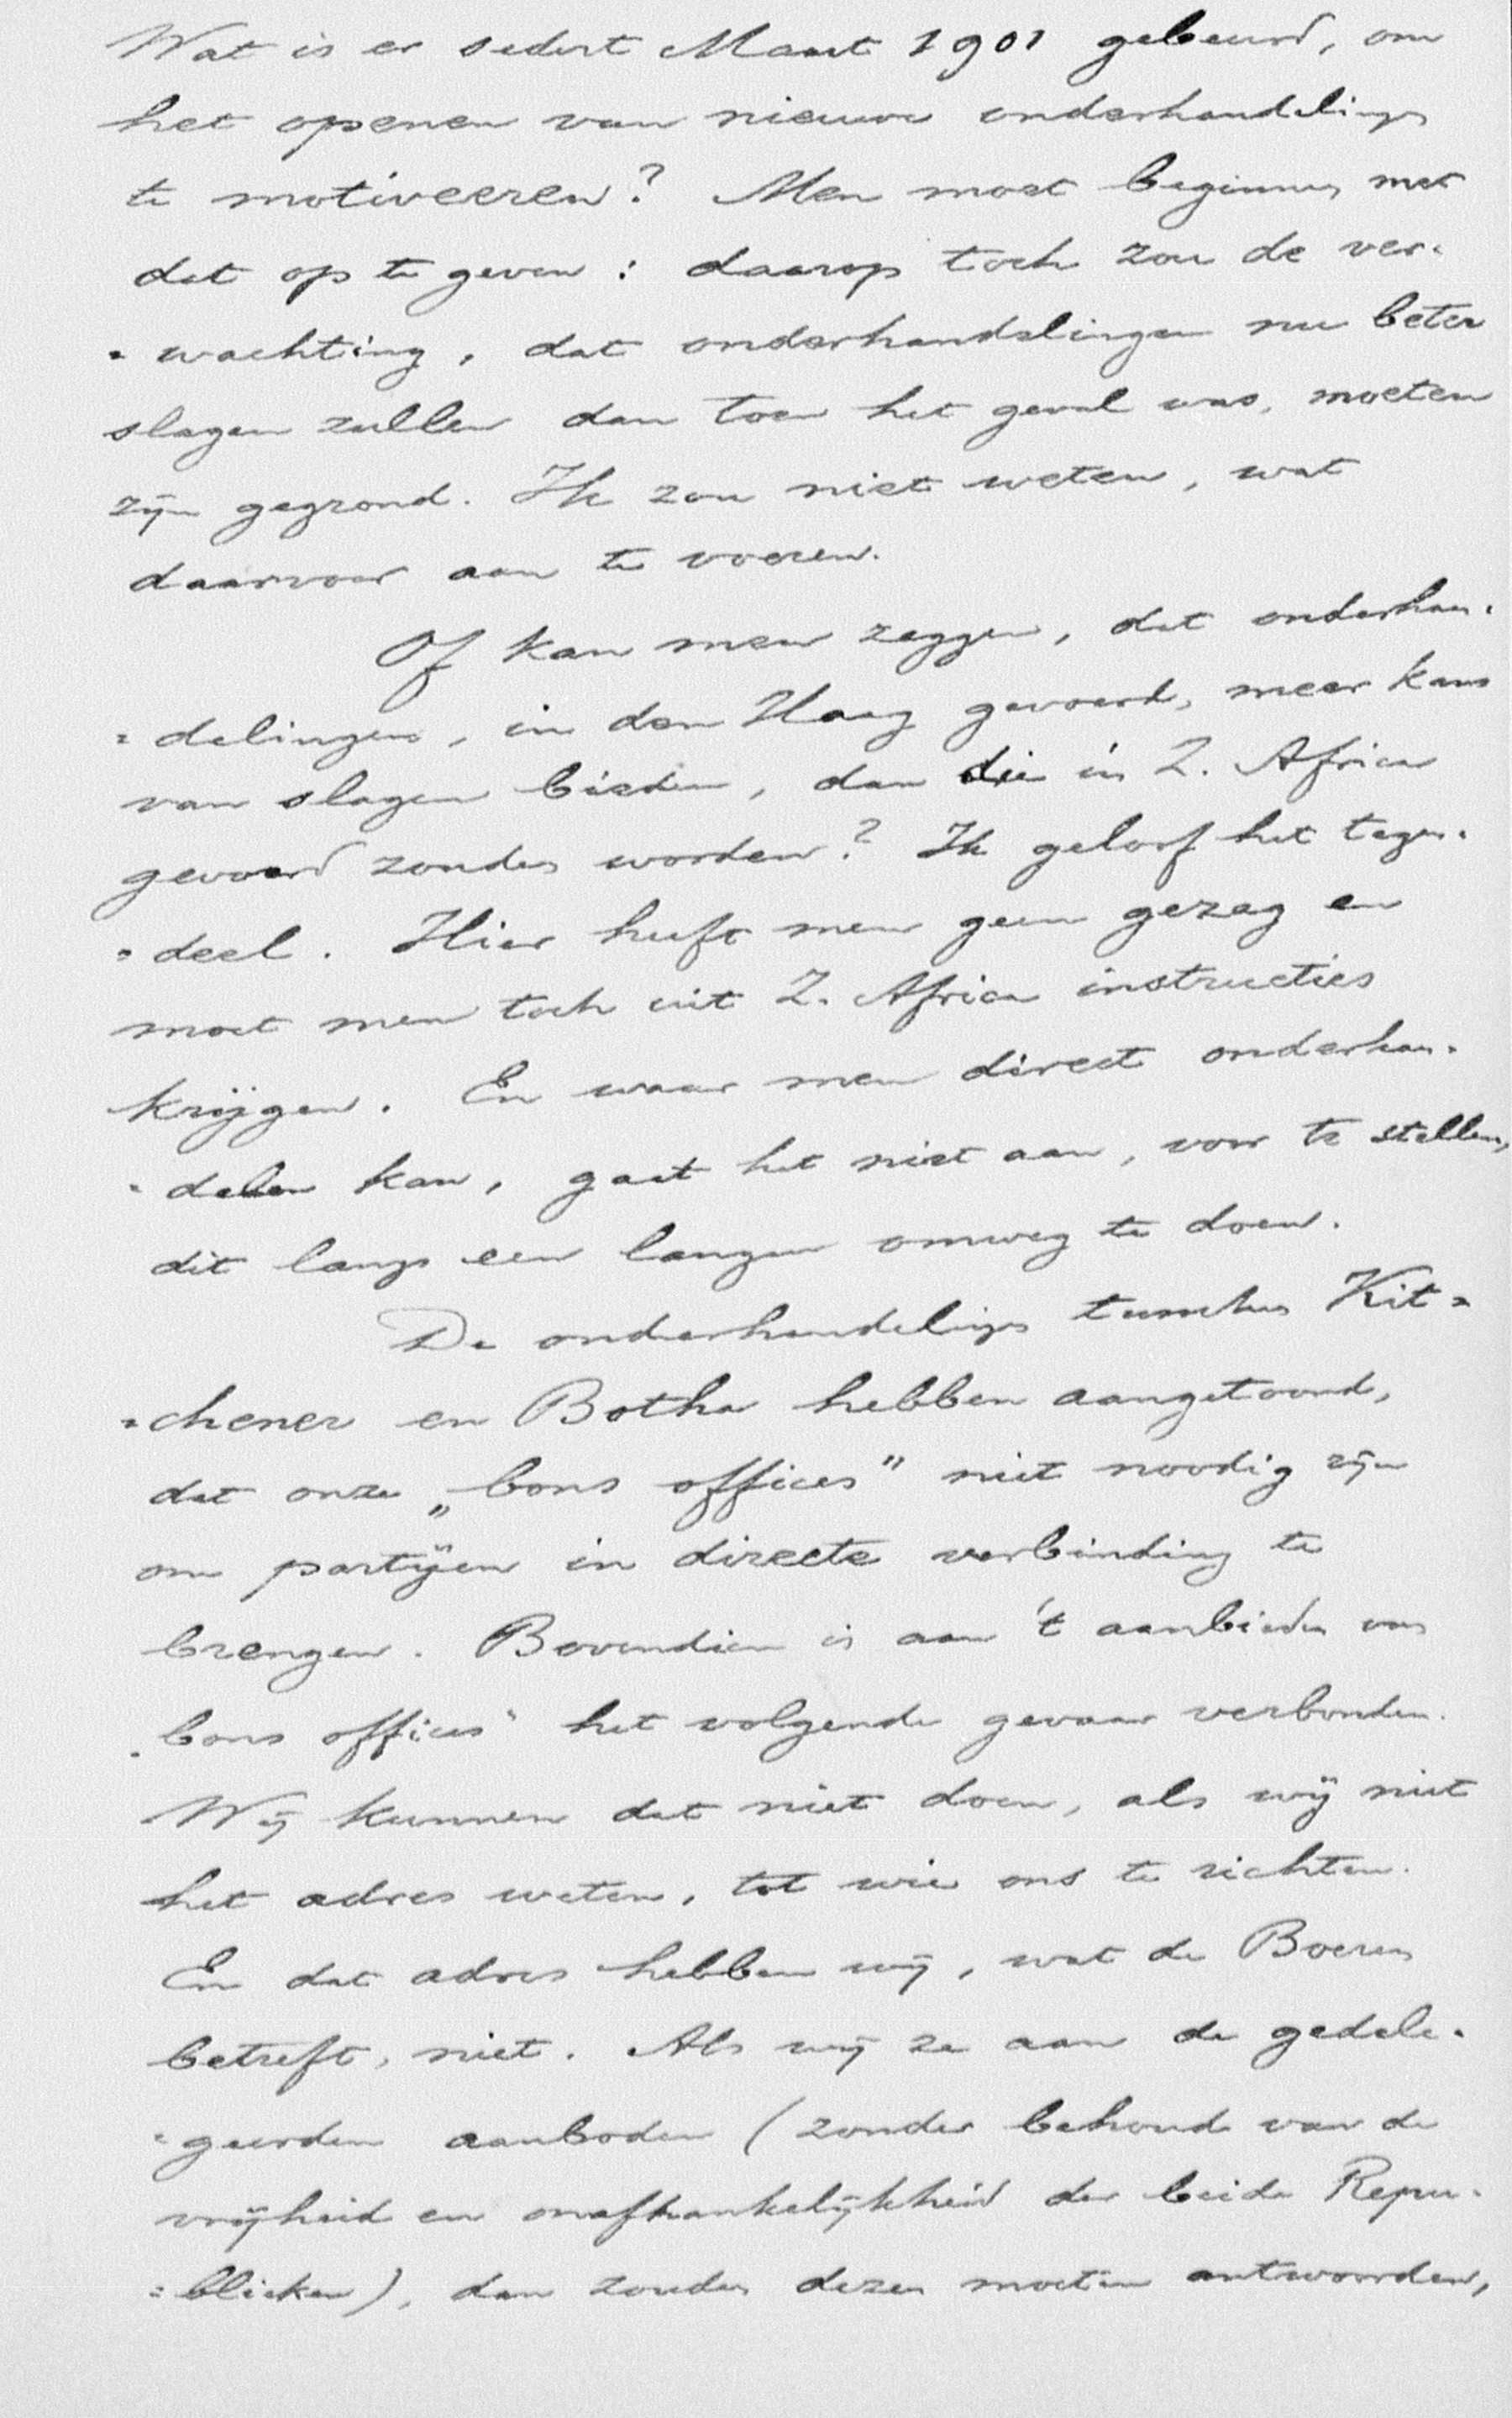 Wat is er sedert Maart 1901 gebeurd, om
het openen van nieuwe onderhandelings
te motiveeren? Men moet beginnen met
dat op te geven: daarop toch zou de ver-
=wachting, dat onderhandelingen nu beter
slagen zullen dan toen het geval was, moeten
zijn gegrond. Ik zou niet weten, wat
daarvoor aan te voeren.
Of kan men zeggen, dat onderhan-
=delingen, in den Haag gevoerd, meer kans
van slagen bieden, dan die in Z. Africa
gevoerd zouden worden? Ik geloof het tegen-
=deel. Hier heeft men geen gezag en
moet men toch uit Z. Africa instructies
krijgen. En waar men direct onderhan-
=delen kan, gaat het niet aan, voor te stellen,
dit langs een langen omweg te doen.
De onderhandelings tusschen Kit=
=chener en Botha hebben aangetoond,
dat onze „bons offices" niet noodig zijn
om partijen in directe verbinding te
brengen. Bovendien is aan 't aanbieden van
„bons offices" het volgende gevaar verbonden.
Wij kunnen dat niet doen, als wij niet
het adres weten, tot wie ons te richten.
En dat adres hebben wij, wat de Boeren
betreft, niet. Als wij ze aan de gedele-
=geerden aanboden (zonder behoud van de
vrijheid en onafhankelijkheid der beide Repu-
=blieken), dan zouden dezen moeten antwoorden,